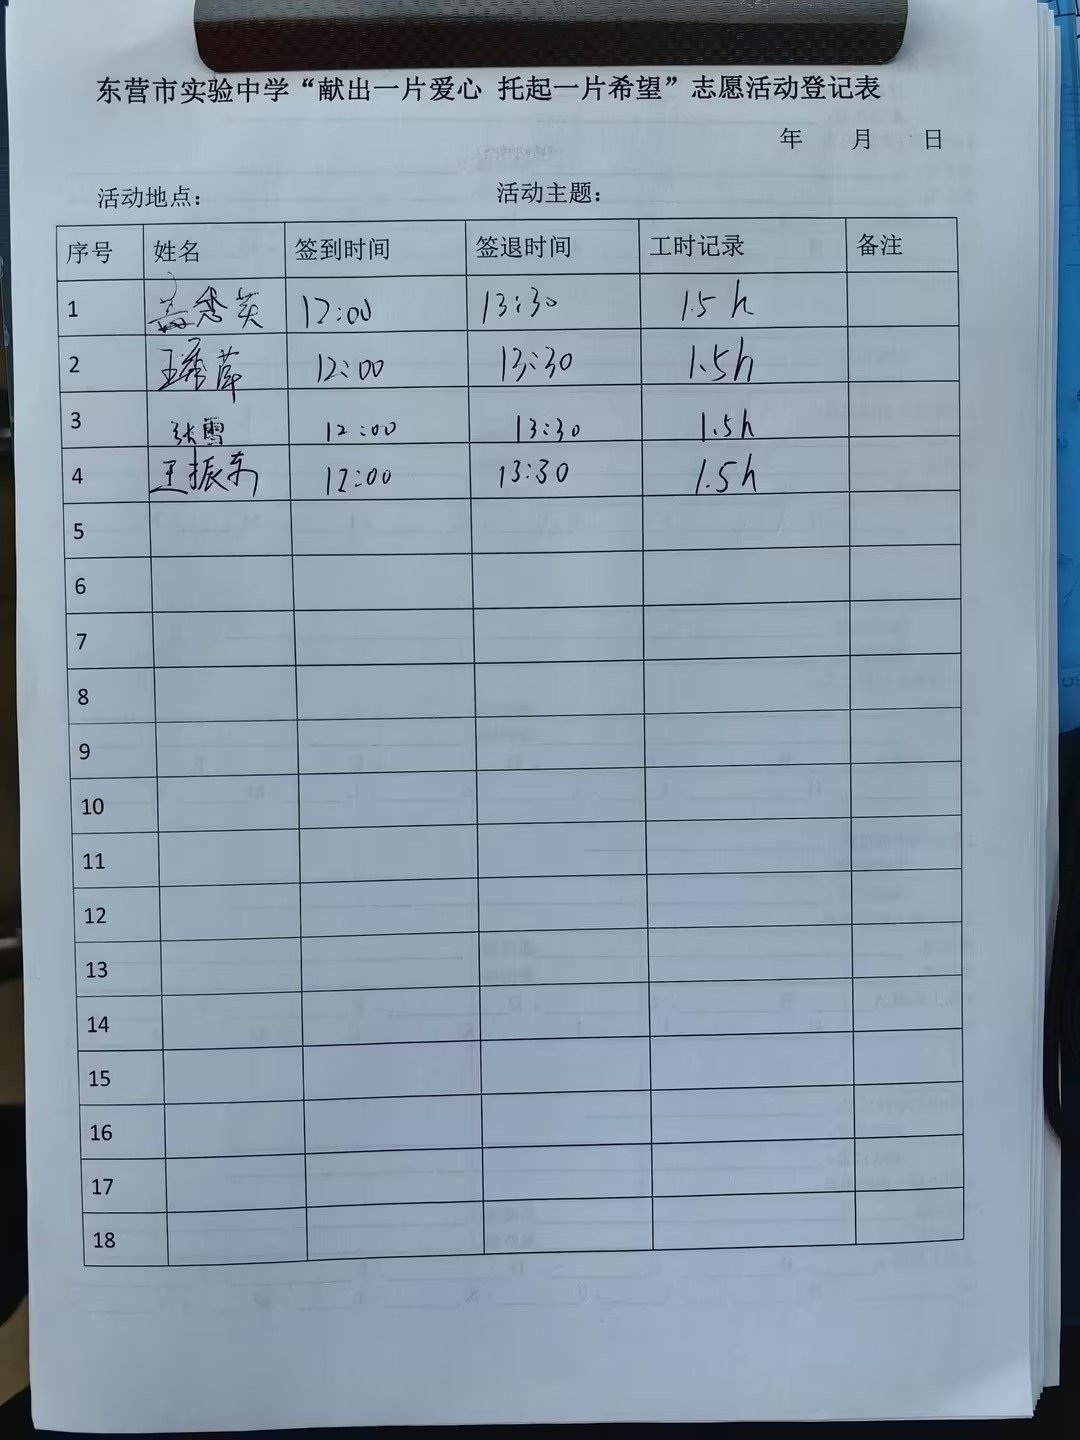 东营市实验中学“献出一片爱心 托起一片希望”志愿活动登记表
年 月 日
活动地点： 活动主题：
序号 姓名 签到时间 签退时间 工时记录 备注
1 秀英 12:00 13:30 1.5 h
2 王秀萍 12:00 13:30 1.5h
3 张雪 12:00 13:30 1.5h
4 王振东 12:00 13:30 1.5h
5
6
7
8
9
10
11
12
13
14
15
16
17
18